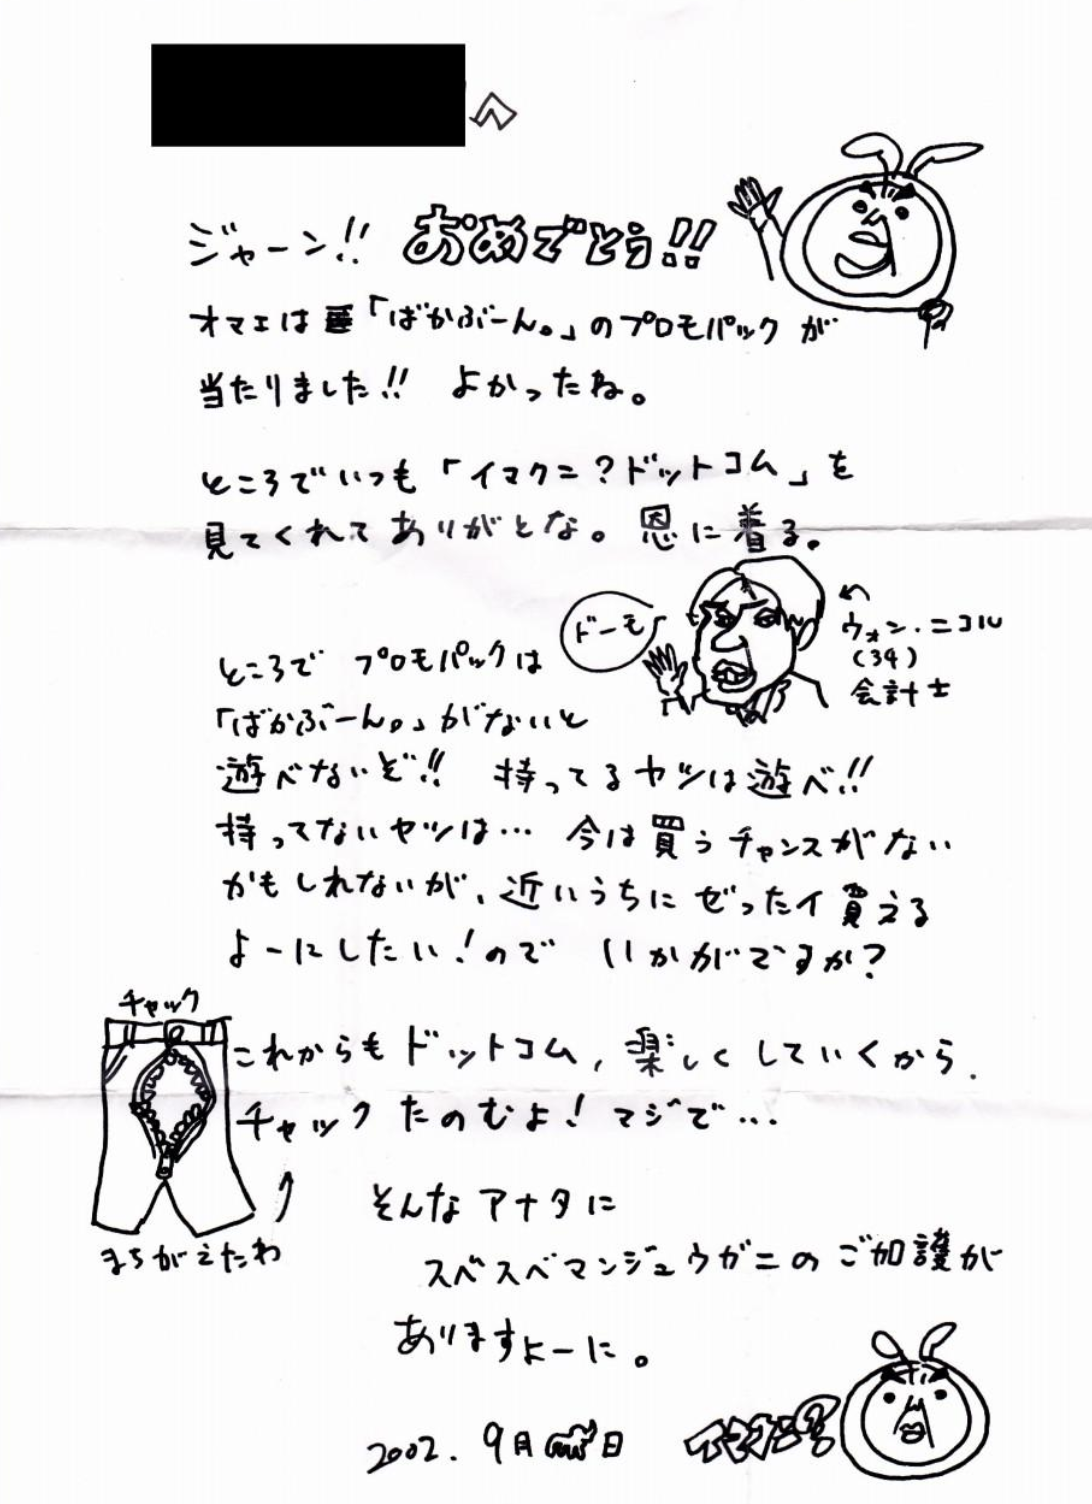 へ
ジャーン!! おめでとう!!
オマエは「ばかぶーん。」のプロモパックが
当たりました!! よかったね。
ところでいつも「イマクニ?ドットコム」を
見てくれてありがとな。恩に着る。
ドーモ
ウォン・ニコル
(34)
会計士
ところで プロモパックは
「ばかぶーん。」がないと
遊べないぞ!! 持ってるヤツは遊べ!!
持ってないヤツは… 今は買うチャンスがない
かもしれないが、近いうちにぜったイ買える
よーにしたい!ので いかがですか?
チャック
これからもドットコム,楽しくしていくから.
チャック たのむよ! マジで…
まちがえたわ
そんなアナタに
スベスベマンジュウガニのご加護が
ありますよーに。
2002. 9月 日
イマクニ?